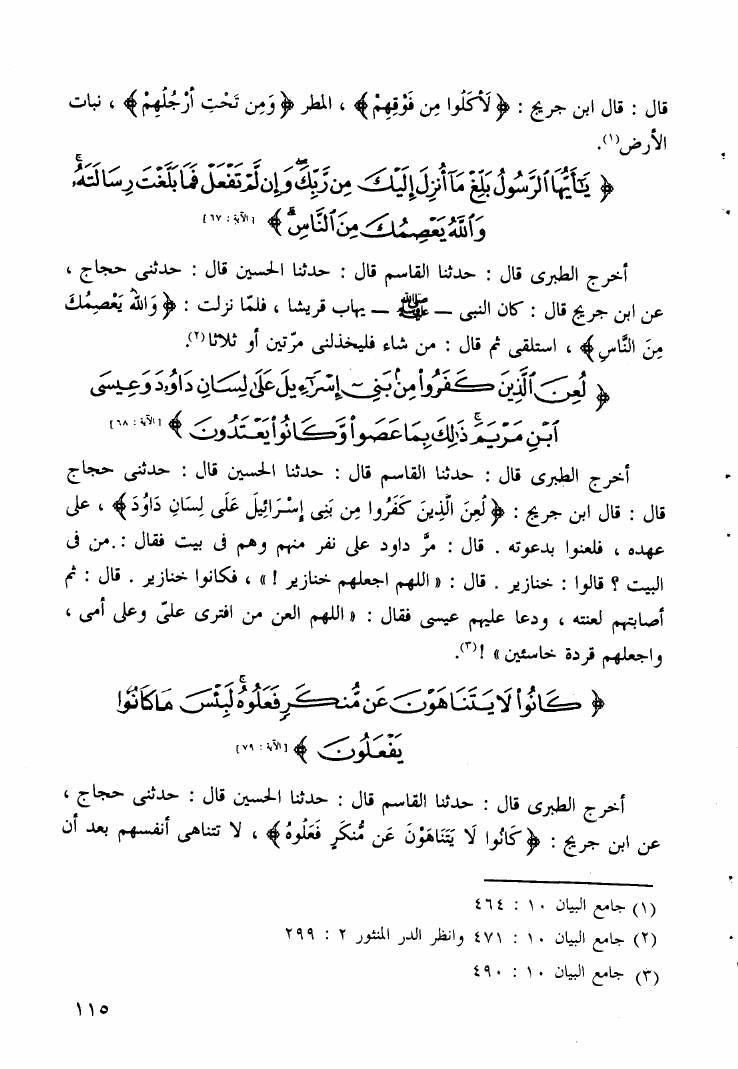 قال : قال ابن جريج : ﴿ لَأَكَلُوا مِن فَوْقِهِمْ ﴾ ، المطر ﴿ وَمِن تَحْتِ أَرْجُلِهِمْ ﴾ ، نبات
الأرض(١).
﴿ يَٰٓأَيُّهَا ٱلرَّسُولُ بَلِّغْ مَآ أُنزِلَ إِلَيْكَ مِن رَّبِّكَ ۖ وَإِن لَّمْ تَفْعَلْ فَمَا بَلَّغْتَ رِسَالَتَهُۥ ۚ
وَٱللَّهُ يَعْصِمُكَ مِنَ ٱلنَّاسِ ۗ ﴾ [الآية : ٦٧]
أخرج الطبرى قال : حدثنا القاسم قال : حدثنا الحسين قال : حدثنى حجاج ،
عن ابن جريج قال : كان النبى – ﷺ – يهاب قريشا ، فلمّا نزلت : ﴿ وَاللهُ يَعْصِمُكَ
مِنَ النَّاسِ ﴾ ، استلقى ثم قال : من شاء فليخذلنى مرّتين أو ثلاثا(٢).
﴿ لُعِنَ ٱلَّذِينَ كَفَرُوا۟ مِنۢ بَنِىٓ إِسْرَٰٓءِيلَ عَلَىٰ لِسَانِ دَاوُۥدَ وَعِيسَى
ٱبْنِ مَرْيَمَ ۚ ذَٰلِكَ بِمَا عَصَوا۟ وَّكَانُوا۟ يَعْتَدُونَ ﴾ [الآية : ٦٨]
أخرج الطبرى قال : حدثنا القاسم قال : حدثنا الحسين قال : حدثنى حجاج
قال : قال ابن جريج : ﴿ لُعِنَ الَّذِينَ كَفَرُوا مِن بَنِى إِسْرَائِيلَ عَلَى لِسَانِ دَاوُدَ ﴾ ، على
عهده ، فلعنوا بدعوته . قال : مرَّ داود على نفر منهم وهم فى بيت فقال : من فى
البيت ؟ قالوا : خنازير . قال : « اللهم اجعلهم خنازير ! » ، فكانوا خنازير . قال : ثم
أصابتهم لعنته ، ودعا عليهم عيسى فقال : « اللهم العن من افترى علىّ وعلى أمى ،
واجعلهم قردة خاسئين » !(٣).
﴿ كَانُوا۟ لَا يَتَنَاهَوْنَ عَن مُّنكَرٍ فَعَلُوهُ ۚ لَبِئْسَ مَا كَانُوا۟
يَفْعَلُونَ ﴾ [الآية : ٧٩]
أخرج الطبرى قال : حدثنا القاسم قال : حدثنا الحسين قال : حدثنى حجاج ،
عن ابن جريج : ﴿ كَانُوا لَا يَتَنَاهَوْنَ عَن مُّنكَرٍ فَعَلُوهُ ﴾ ، لا تتناهى أنفسهم بعد أن
(١) جامع البيان ١٠ : ٤٦٤
(٢) جامع البيان ١٠ : ٤٧١ وانظر الدر المنثور ٢ : ٢٩٩
(٣) جامع البيان ١٠ : ٤٩٠
١١٥